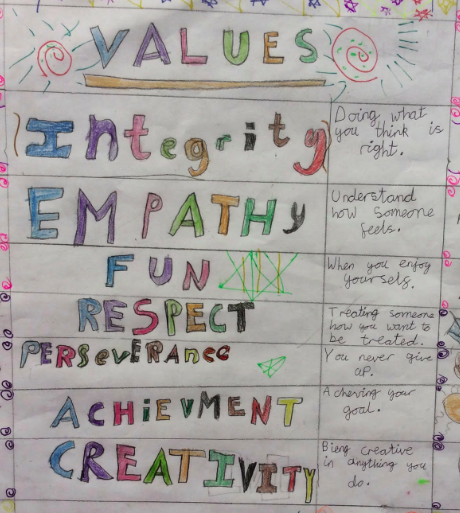 VALUES
Integrity
Doing what
you think is
right.
EMPATHy
Understand
how someone
feels.
FUN
When you enjoy
yourself.
RESPECT
Treating someone
how you want to
be treated.
PERSeVERAnce
You never give
up.
ACHiEVMENT
Acheving your
goal.
CREATIVITY
Bieng creative
in anything you
do.